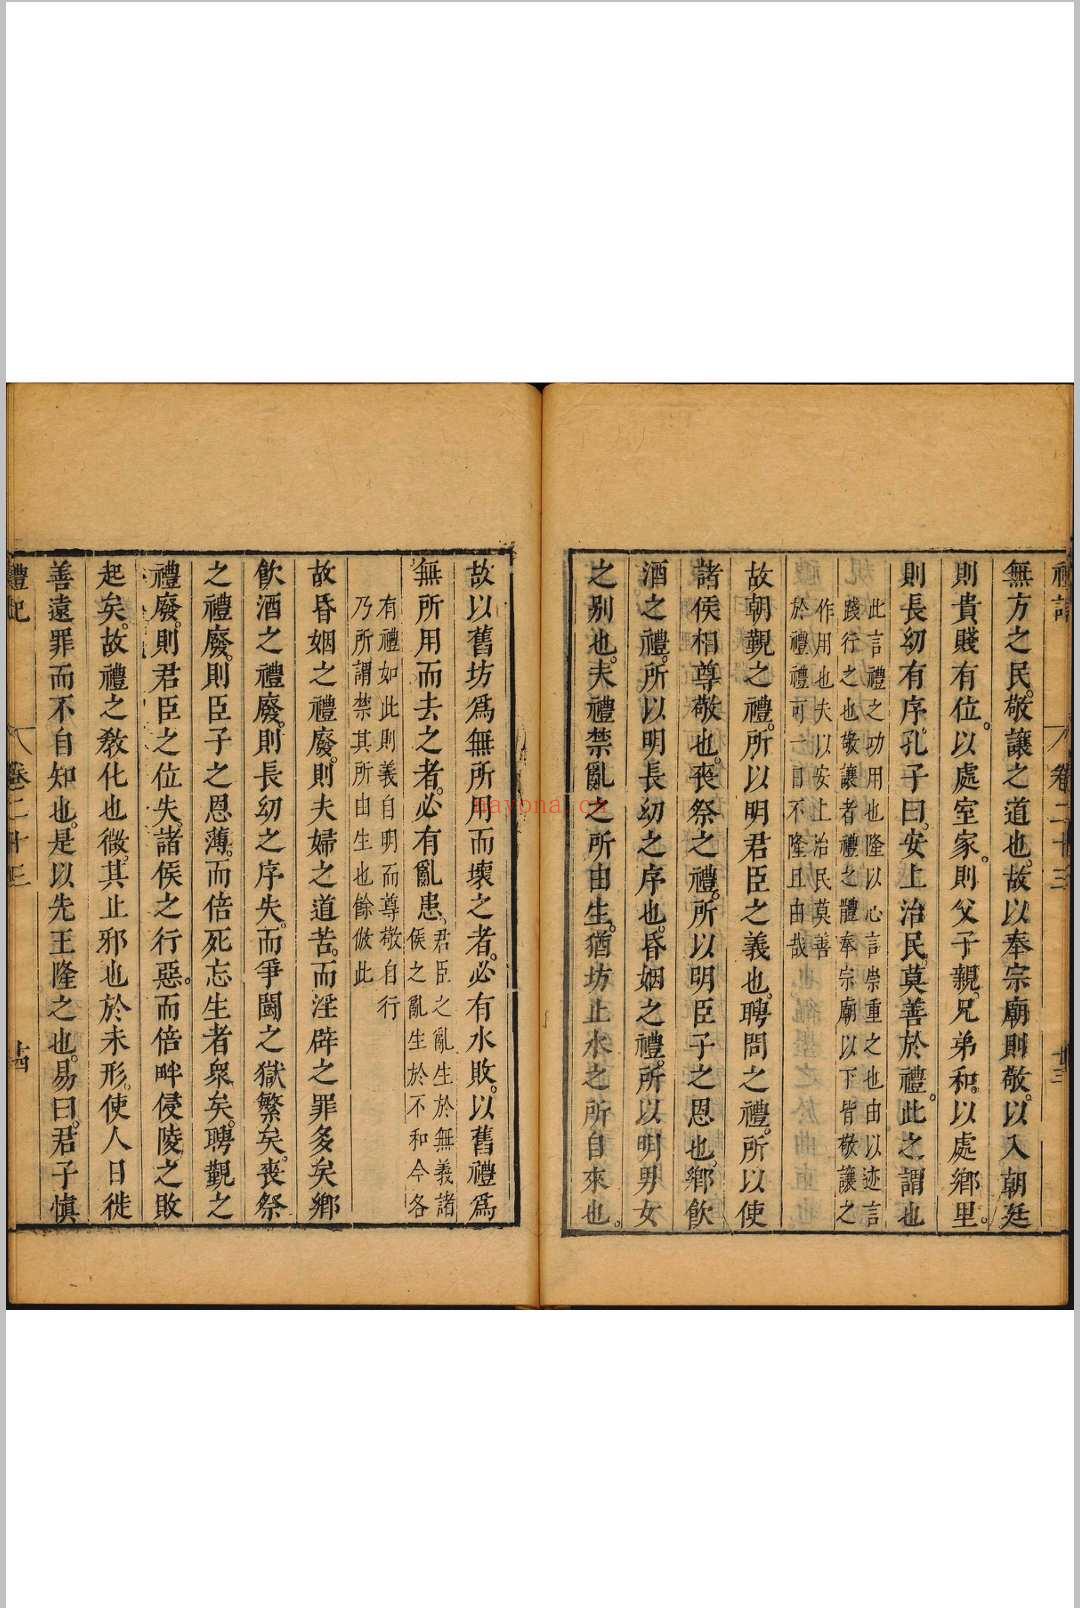 禮記
卷二十三
廿三
無方之民。敬讓之道也。故以奉宗廟則敬。以入朝廷
則貴賤有位。以處室家。則父子親。兄弟和。以處鄉里。
則長幼有序。孔子曰。安上治民。莫善於禮。此之謂也
此言禮之功用也隆以心言崇重之也由以迹言
踐行之也敬讓者禮之體奉宗廟以下皆敬讓之
作用也夫以安上治民莫善
於禮禮可一日不隆且由哉
故朝覲之禮。所以明君臣之義也。聘問之禮。所以使
諸侯相尊敬也。喪祭之禮。所以明臣子之恩也。鄉飲
酒之禮。所以明長幼之序也。昏姻之禮。所以明男女
之别也。夫禮禁亂之所由生。猶坊止水之所自來也。
故以舊坊爲無所用而壞之者。必有水敗。以舊禮爲
無所用而去之者。必有亂患。君臣之亂生於無義諸
侯之亂生於不和今各
有禮如此則義自明而尊敬自行
乃所謂禁其所由生也餘倣此
故昏姻之禮廢。則夫婦之道苦。而淫辟之罪多矣鄉
飲酒之禮廢。則長幼之序失。而爭鬭之獄繁矣。喪祭
之禮廢。則臣子之恩薄。而倍死忘生者衆矣。聘覲之
禮廢。則君臣之位失。諸侯之行惡。而倍畔侵陵之敗
起矣。故禮之敎化也微。其止邪也於未形。使人日徙
善遠罪而不自知也。是以先王隆之也。易曰。君子慎
禮記
卷二十三
廿四
nayona.cn